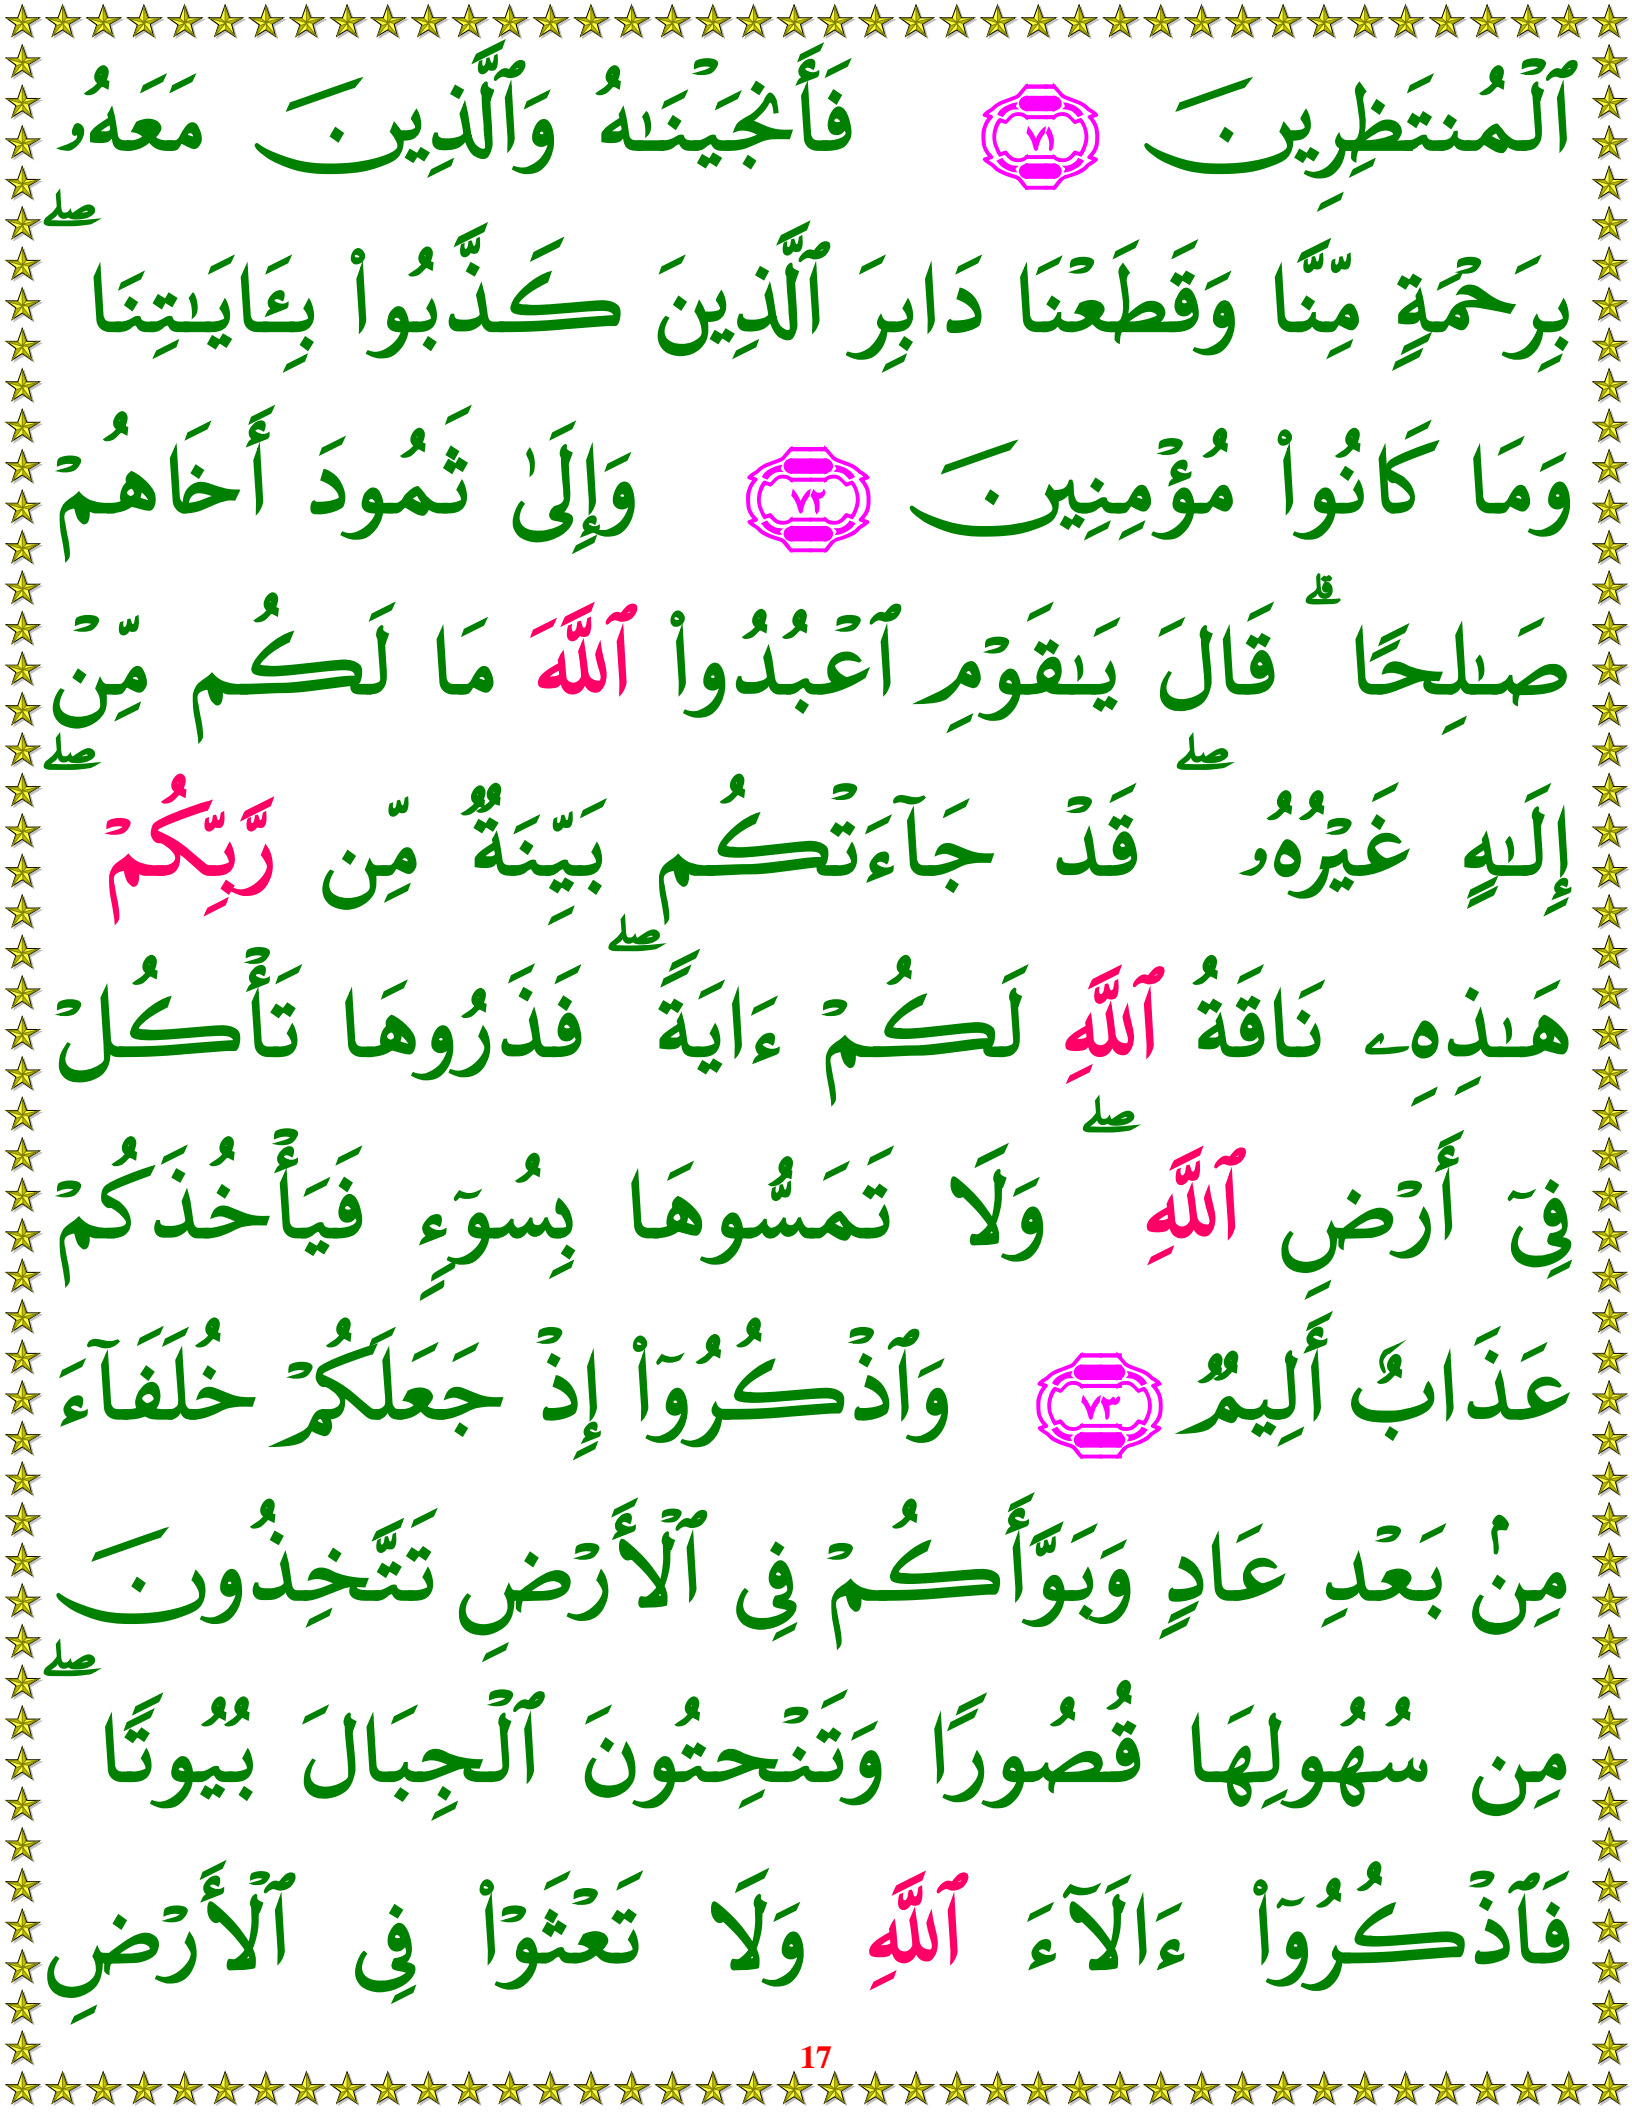 ٱلْمُنتَظِرِينَ ﴿٧١﴾ فَأَنجَيْنَـٰهُ وَٱلَّذِينَ مَعَهُۥ
بِرَحْمَةٍ مِّنَّا وَقَطَعْنَا دَابِرَ ٱلَّذِينَ كَذَّبُوا۟ بِـَٔايَـٰتِنَا ۖ
وَمَا كَانُوا۟ مُؤْمِنِينَ ﴿٧٢﴾ وَإِلَىٰ ثَمُودَ أَخَاهُمْ
صَـٰلِحًا ۗ قَالَ يَـٰقَوْمِ ٱعْبُدُوا۟ ٱللَّهَ مَا لَكُم مِّنْ
إِلَـٰهٍ غَيْرُهُۥ ۖ قَدْ جَآءَتْكُم بَيِّنَةٌ مِّن رَّبِّكُمْ ۖ
هَـٰذِهِۦ نَاقَةُ ٱللَّهِ لَكُمْ ءَايَةً ۖ فَذَرُوهَا تَأْكُلْ
فِىٓ أَرْضِ ٱللَّهِ ۖ وَلَا تَمَسُّوهَا بِسُوٓءٍ فَيَأْخُذَكُمْ
عَذَابٌ أَلِيمٌ ﴿٧٣﴾ وَٱذْكُرُوٓا۟ إِذْ جَعَلَكُمْ خُلَفَآءَ
مِنۢ بَعْدِ عَادٍ وَبَوَّأَكُمْ فِى ٱلْأَرْضِ تَتَّخِذُونَ
مِن سُهُولِهَا قُصُورًا وَتَنْحِتُونَ ٱلْجِبَالَ بُيُوتًا ۖ
فَٱذْكُرُوٓا۟ ءَالَآءَ ٱللَّهِ وَلَا تَعْثَوْا۟ فِى ٱلْأَرْضِ
17